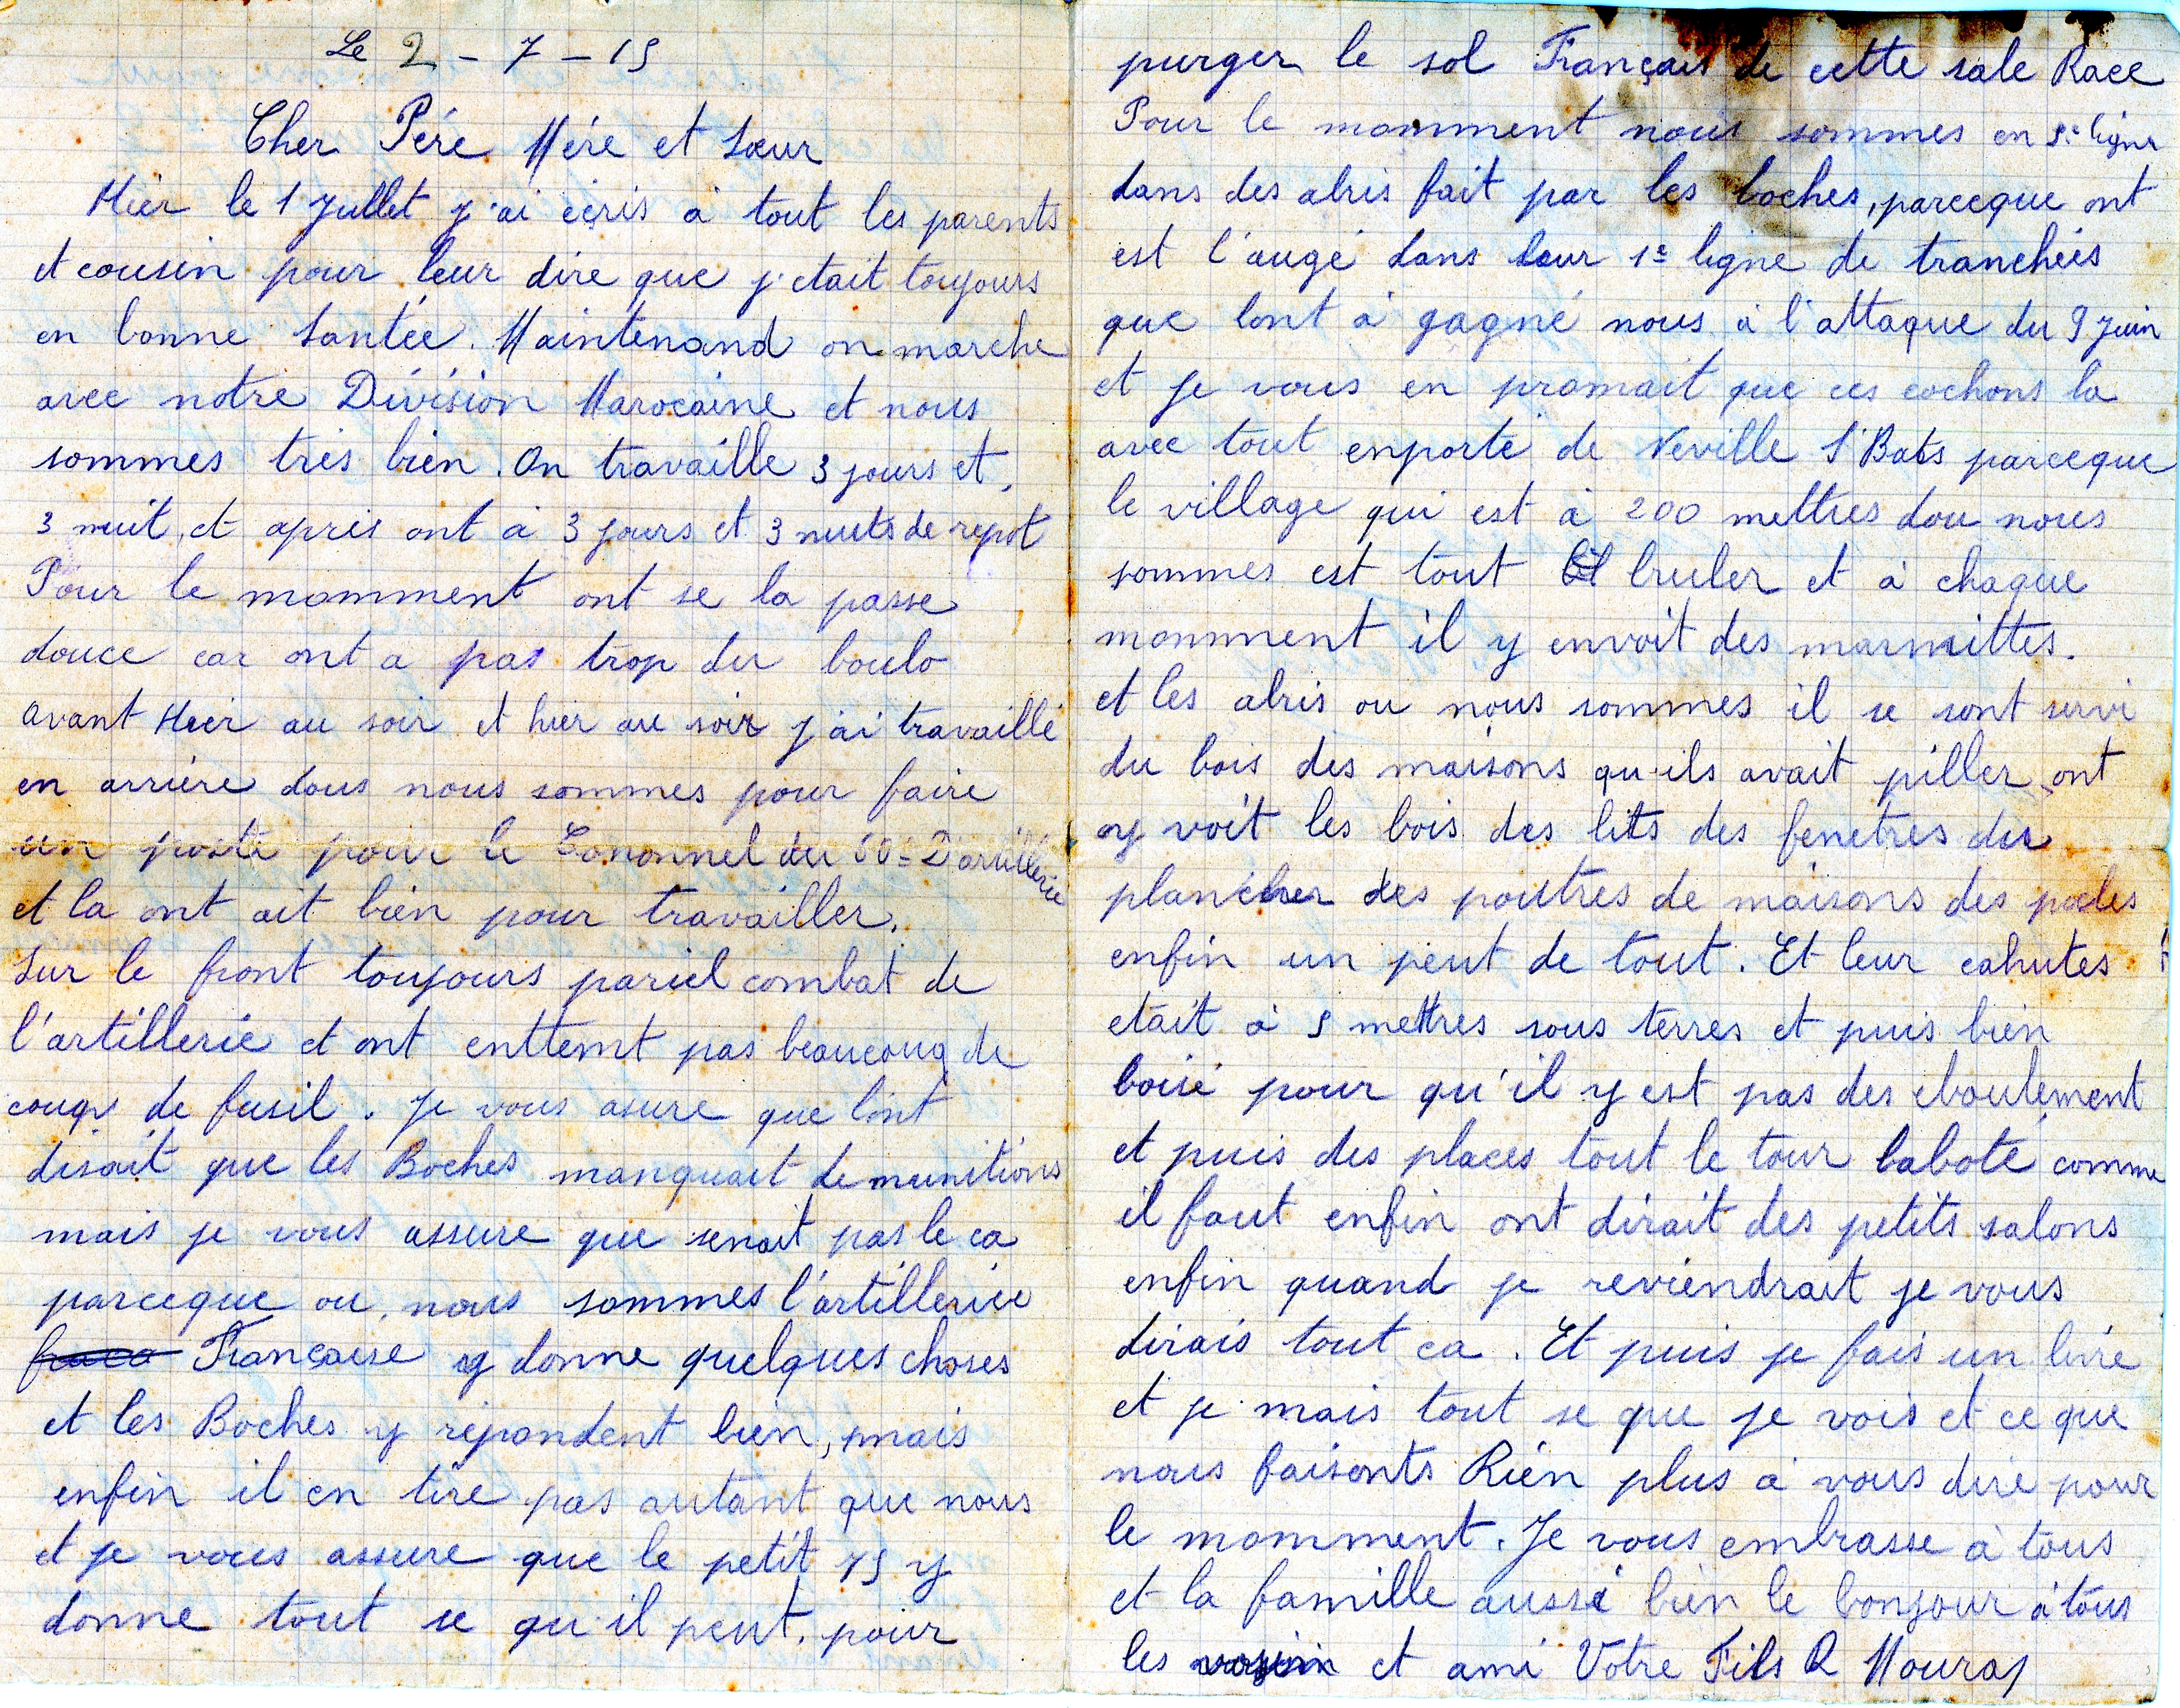 Le 2 - 7 - 15
Cher Pére Mére et Sœur
Hier le 1 Juillet j'ai ecris a tout les parents
et cousin pour leur dire que j'etait toujours
en bonne Santée. Maintenand on marche
avec notre Division Marocaine et nous
sommes tres bien. On travaille 3 jours et
3 nuit, et apres ont a 3 jours et 3 nuits de repot
Pour le momment ont se la passe
douce car ont a pas trop du boulo
avant Hier au soir et hier au soir j'ai travaillé
en arriere dous nous sommes pour faire
un poste pour le Cononnel du 50e D'artillerie
et la ont ait bien pour travailler.
Sur le front toujours pariel combat de
l'artillerie et ont enttemt pas beaucoup de
coups de fusil. Je vous asure que lont
disait que les Boches manquait de munitions
mais je vous assure que senait pas le ca
parceque ou nous sommes l'artilleriee
Francaise y donne quelques choses
et les Boches y repondent bien, mais
enfin il en tire pas autant que nous
et je vous assure que le petit 75 y
donne tout se qu'il peut. pour
purger le sol Français de cette sale Race
Pour le momment nous sommes en 5e ligne
dans des abris fait par les boches, parceque ont
est l'augé dans leur 1e ligne de tranchées
que lont a gagné nous a l'attaque du 9 Juin
et je vous en promait que ces cochons la
avec tout enporté de Neville St Bats parceque
le village qui est à 200 mettres dou nous
sommes est tout bruler et a chaque
momment il y envoit des marmittes.
et les abris ou nous sommes il se sont servi
du bois des maisons qu-ils avait piller, ont
y voit les bois des lits des fenetres des
plancher des poutres de maisons des poeles
enfin un peut de tout. Et leur cahutes
etait à 5 mettres sous terres et puis bien
boisé pour qu'il y est pas des eboulement
et puis des places tout le tour baboté comme
il faut enfin ont dirait des petits salons
enfin quand je reviendrait je vous
dirais tout ca. Et puis je fais un livre
et je mais tout se que je vois et ce que
nous faisonts Rien plus a vous dire pour
le momment. Je vous embrasse a tous
et la famille aussi bien le bonjour a tous
les voisin et ami Votre Fils R Mouras